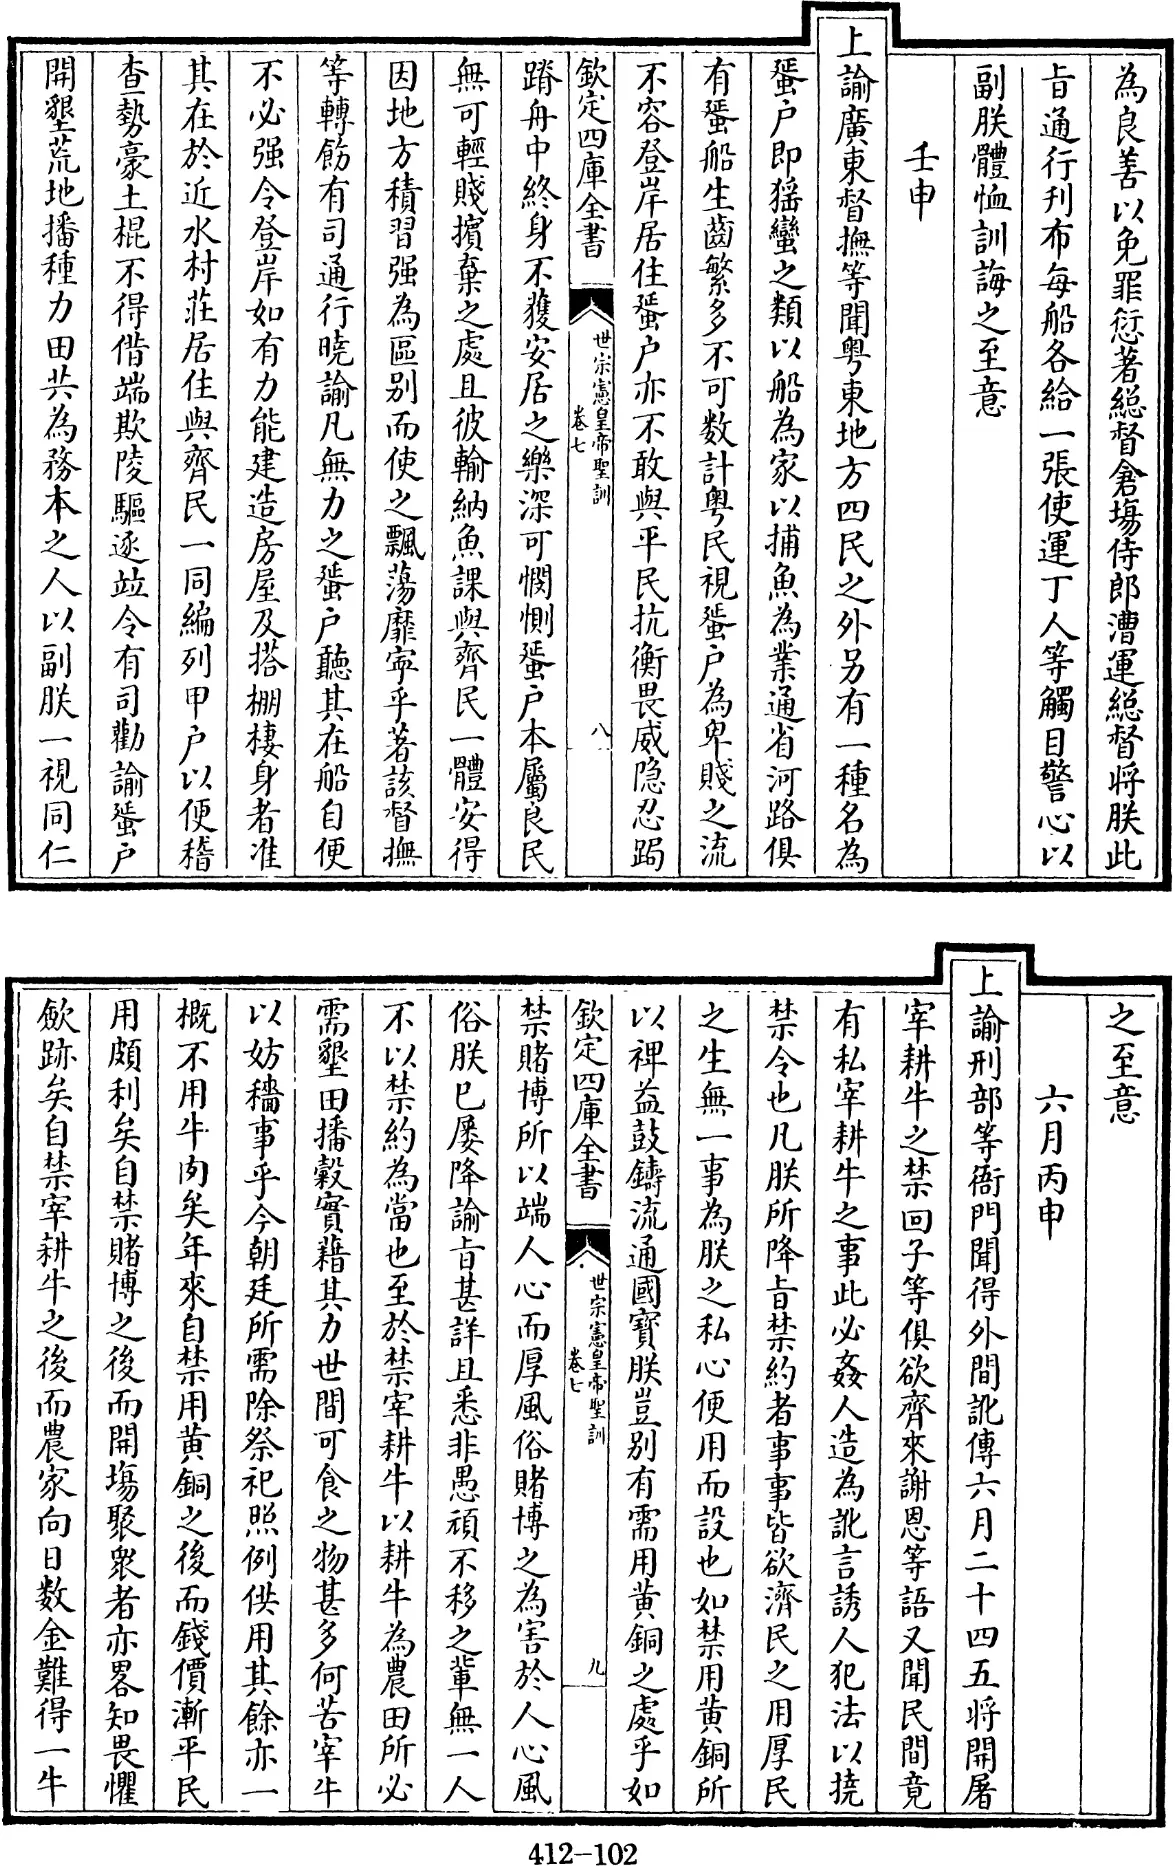 為良善以免罪愆著総督倉場侍郎漕運総督將朕此
旨通行刊布每船各給一張使運丁人等觸目警心以
副朕體恤訓誨之至意
壬申
上諭廣東督撫等聞粤東地方四民之外另有一種名為
蜑户即猺蠻之類以船為家以捕魚為業通省河路俱
有蜑船生齒繁多不可数計粤民視蜑户為卑賤之流
不容登岸居住蜑户亦不敢與平民抗衡畏威隐忍跼
欽定四庫全書
世宗憲皇帝聖訓
卷七
八
蹐舟中終身不獲安居之樂深可憫惻蜑户本屬良民
無可輕賤擯棄之處且彼輸納魚課與齊民一體安得
因地方積習强為區别而使之飄蕩靡寕乎著該督撫
等轉飭有司通行曉諭凡無力之蜑户聽其在船自便
不必强令登岸如有力能建造房屋及搭棚棲身者准
其在於近水村莊居住與齊民一同編列甲户以便稽
查勢豪土棍不得借端欺陵驅逐竝令有司勸諭蜑户
開墾荒地播種力田共為務本之人以副朕一視同仁
之至意
六月丙申
上諭刑部等衙門聞得外間訛傳六月二十四五將開屠
宰耕牛之禁回子等俱欲齊來謝恩等語又聞民間竟
有私宰耕牛之事此必姦人造為訛言誘人犯法以撓
禁令也凡朕所降旨禁約者事事皆欲濟民之用厚民
之生無一事為朕之私心便用而設也如禁用黄銅所
以裨益鼓鑄流通國寳朕豈别有需用黄銅之處乎如
欽定四庫全書
世宗憲皇帝聖訓
卷七
九
禁賭博所以端人心而厚風俗賭博之為害於人心風
俗朕已屡降諭旨甚詳且悉非愚頑不移之軰無一人
不以禁約為當也至於禁宰耕牛以耕牛為農田所必
需墾田播穀實藉其力世間可食之物甚多何苦宰牛
以妨穡事乎今朝廷所需除祭祀照例供用其餘亦一
概不用牛肉矣年來自禁用黄銅之後而錢價漸平民
用頗利矣自禁賭博之後而開塲聚衆者亦畧知畏懼
歛跡矣自禁宰耕牛之後而農家向日数金難得一牛
412-102